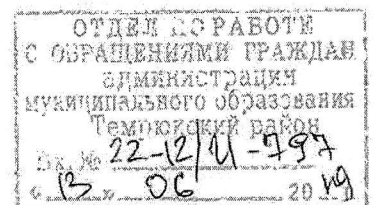 ОТДЕЛ ПО РАБОТЕ
С ОБРАЩЕНИЯМИ ГРАЖДАН
администрации
муниципального образования
Темрюкский район
Вх. №
« 13 » 06 20